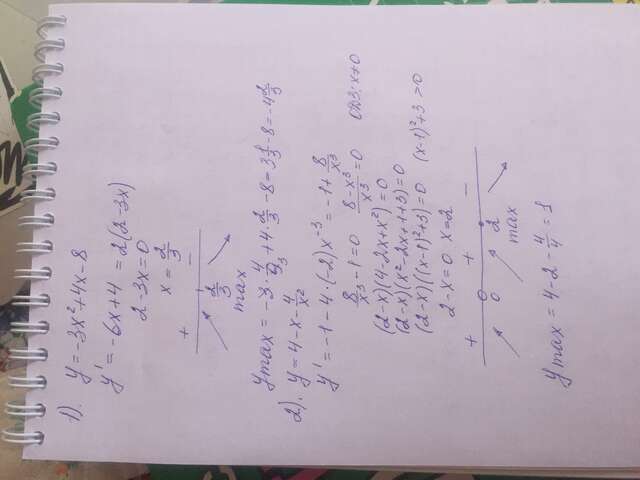 1). y = -3x² + 4x - 8
y' = -6x + 4 = 2(2 - 3x)
2 - 3x = 0
x = 2/3
+ -
2/3
max
y max = -3 · 4/9 + 4 · 2/3 - 8 = 3 1/3 - 8 = -4 2/3
2). y = 4 - x - 4/x²
y' = -1 - 4 · (-2)x⁻³ = -1 + 8/x³
8/x³ - 1 = 0 (8 - x³)/x³ = 0 ОДЗ: x ≠ 0
(2 - x)(4 - 2x + x²) = 0
(2 - x)(x² - 2x + 1 + 3) = 0
(2 - x)((x - 1)² + 3) = 0 (x - 1)² + 3 > 0
2 - x = 0 x = 2
+ + -
0 2
max
y max = 4 - 2 - 4/4 = 1